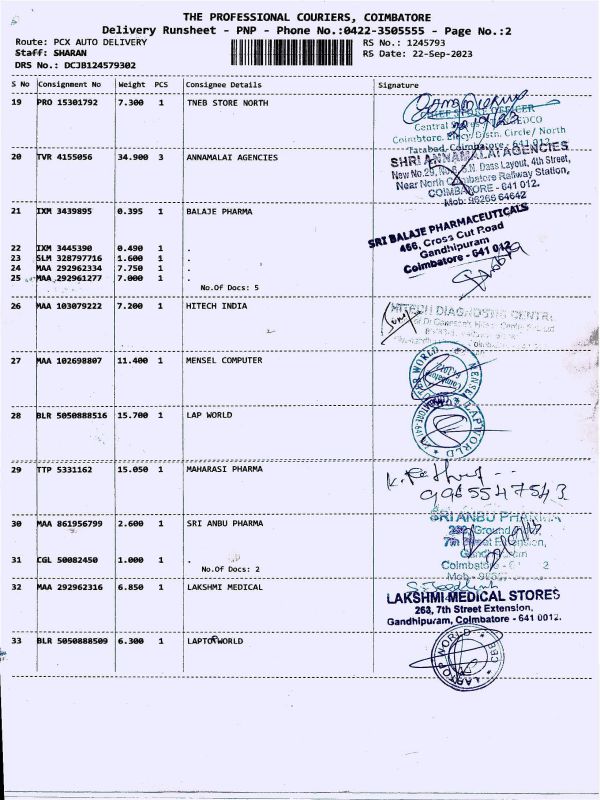 THE PROFESSIONAL COURIERS, COIMBATORE
Delivery Runsheet - PNP - Phone No.:0422-3505555 - Page No.:2
Route: PCX AUTO DELIVERY RS No.: 1245793
Staff: SHARAN RS Date: 22-Sep-2023
DRS No.: DCJB124579302
S No Consignment No Weight PCS Consignee Details Signature
19 PRO 15301792 7.300 1 TNEB STORE NORTH
CHIEF STORE OFFICER
Central
Coimbatore. Elecy/Distn. Circle/ North
Tatabad, Coimbatore - 641 012.
20 TVR 4155056 34.900 3 ANNAMALAI AGENCIES
SHRI ANNAMALAI AGENCIES
New No.29, Dass Layout, 4th Street,
Near North Coimbatore Railway Station,
COIMBATORE - 641 012.
Mob: 96266 64642
21 IXM 3439895 0.395 1 BALAJE PHARMA
SRI BALAJE PHARMACEUTICALS
466, Cross Cut Road
Gandhipuram
Coimbatore - 641 012
22 IXM 3445390 0.490 1 .
23 SLM 328797716 1.600 1 .
24 MAA 292962334 7.750 1 .
25 MAA 292961277 7.000 1 .
No.Of Docs: 5
26 MAA 103079222 7.200 1 HITECH INDIA
HITECH DIAGNOSTIC CENTRE
27 MAA 102698807 11.400 1 MENSEL COMPUTER
28 BLR 5050888516 15.700 1 LAP WORLD
LAP WORLD
29 TTP 5331162 15.050 1 MAHARASI PHARMA
9965547543
30 MAA 861956799 2.600 1 SRI ANBU PHARMA
SRI ANBU PHARMA
Ground
7th Street Extension,
Coimbatore
31 CGL 50082450 1.000 1 .
No.Of Docs: 2
32 MAA 292962316 6.850 1 LAKSHMI MEDICAL
LAKSHMI MEDICAL STORES
268, 7th Street Extension,
Gandhipuram, Coimbatore - 641 0012.
33 BLR 5050888509 6.300 1 LAPTOPWORLD
LAPTOP WORLD CBE